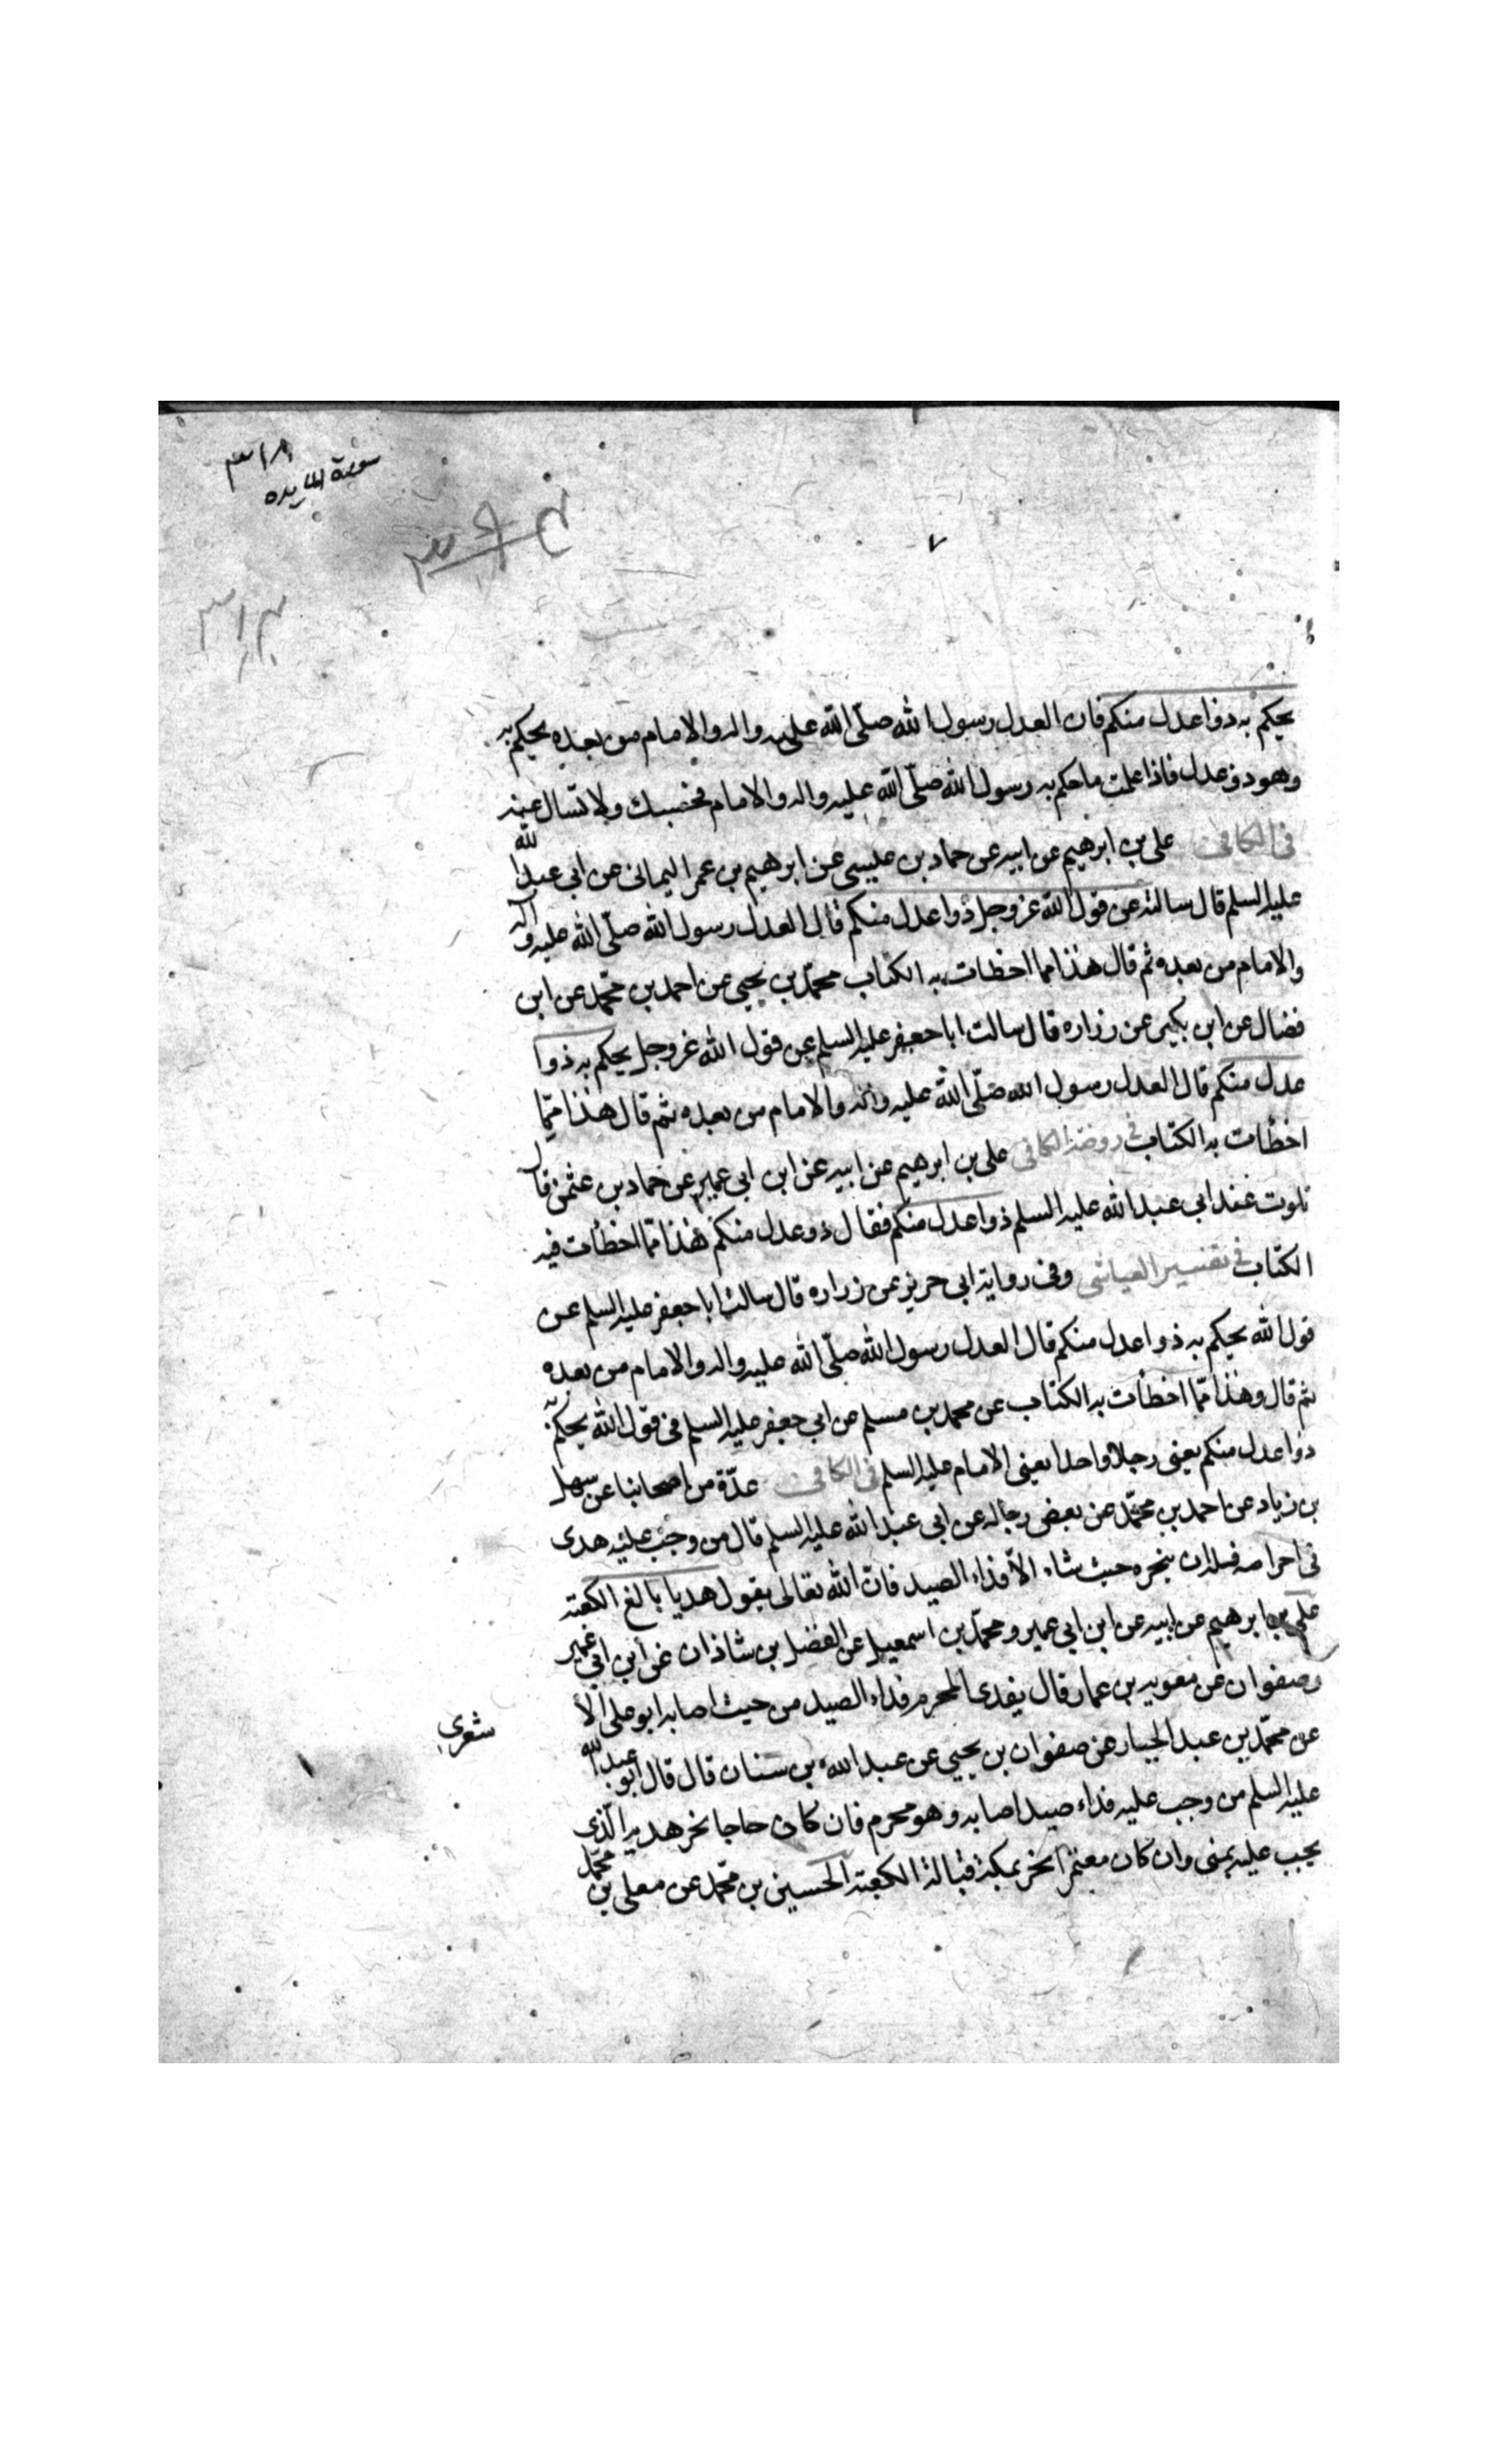 سورة المايده
يحكم به ذوا عدل منكم فان العدل رسول الله صلّى الله عليه واله والامام من بعده يحكم به
وهو ذو عدل فاذا علمت ما حكم به رسول الله صلّى الله عليه واله والامام فحسبك ولا تسال عنه
فى الكافى على بن ابرهيم عن ابيه عن حماد بن عليسى عن ابرهيم بن عمر اليمانى عن ابى عبد الله
عليه السلم قال سالته عن قول الله عز وجل ذوا عدل منكم قال العدل رسول الله صلّى الله عليه واله
والامام من بعده ثم قال هذا مما اخطات به الكتاب محمّد بن يحيى عن احمد بن محمّد عن ابن
فضال عن ابن بكير عن زراره قال سالت ابا جعفر عليه السلم عن قول الله عز وجل يحكم به ذوا
عدل منكم قال العدل رسول الله صلّى الله عليه واله والامام من بعده ثم قال هذا ممّا
اخطات به الكتاب فى روضة الكافى على بن ابرهيم عن ابيه عن ابن ابى عمير عن حماد بن عثمن قال
تلوت عند ابى عبد الله عليه السلم ذوا عدل منكم فقال ذو عدل منكم هذا ممّا اخطأت فيه
الكتاب فى تفسير العياشى وفى رواية ابى حريز عن زراره قال سالت ابا جعفر عليه السلم عن
قول الله يحكم به ذوا عدل منكم قال العدل رسول الله صلّى الله عليه واله والامام من بعده
ثم قال وهذا ممّا اخطأت به الكتاب عن محمد بن مسلم عن ابى جعفر عليه السلم فى قول الله يحكم به
ذوا عدل منكم يعنى رجلا واحدا يعنى الامام عليه السلم فى الكافى عدّة من اصحابنا عن سهل
بن زياد عن احمد بن محمّد عن بعض رجاله عن ابى عبد الله عليه السلم قال من وجب عليه هدى
فى احرامه فله ان ينحره حيث شاء الّا فداء الصيد فانّ الله تعالى يقول هديا بالغ الكعبة
على بن ابرهيم عن ابيه عن ابن ابى عمير ومحمّد بن اسمعيل عن الفضل بن شاذان عن ابن ابى عمير
وصفوان عن معويه بن عمار قال يفدى المحرم فداء الصيد من حيث اصابه ابو على الأ
شعرى
عن محمّد بن عبد الجبار عن صفوان بن يحيى عن عبد الله بن سنان قال قال ابو عبد الله
عليه السلم من وجب عليه فداء صيد اصابه وهو محرم فان كان حاجا نحر هديه الّذى
يجب عليه بمنى وان كان معتمرا نحر بمكة قبالة الكعبة الحسين بن محمّد عن معلى بن محمّد